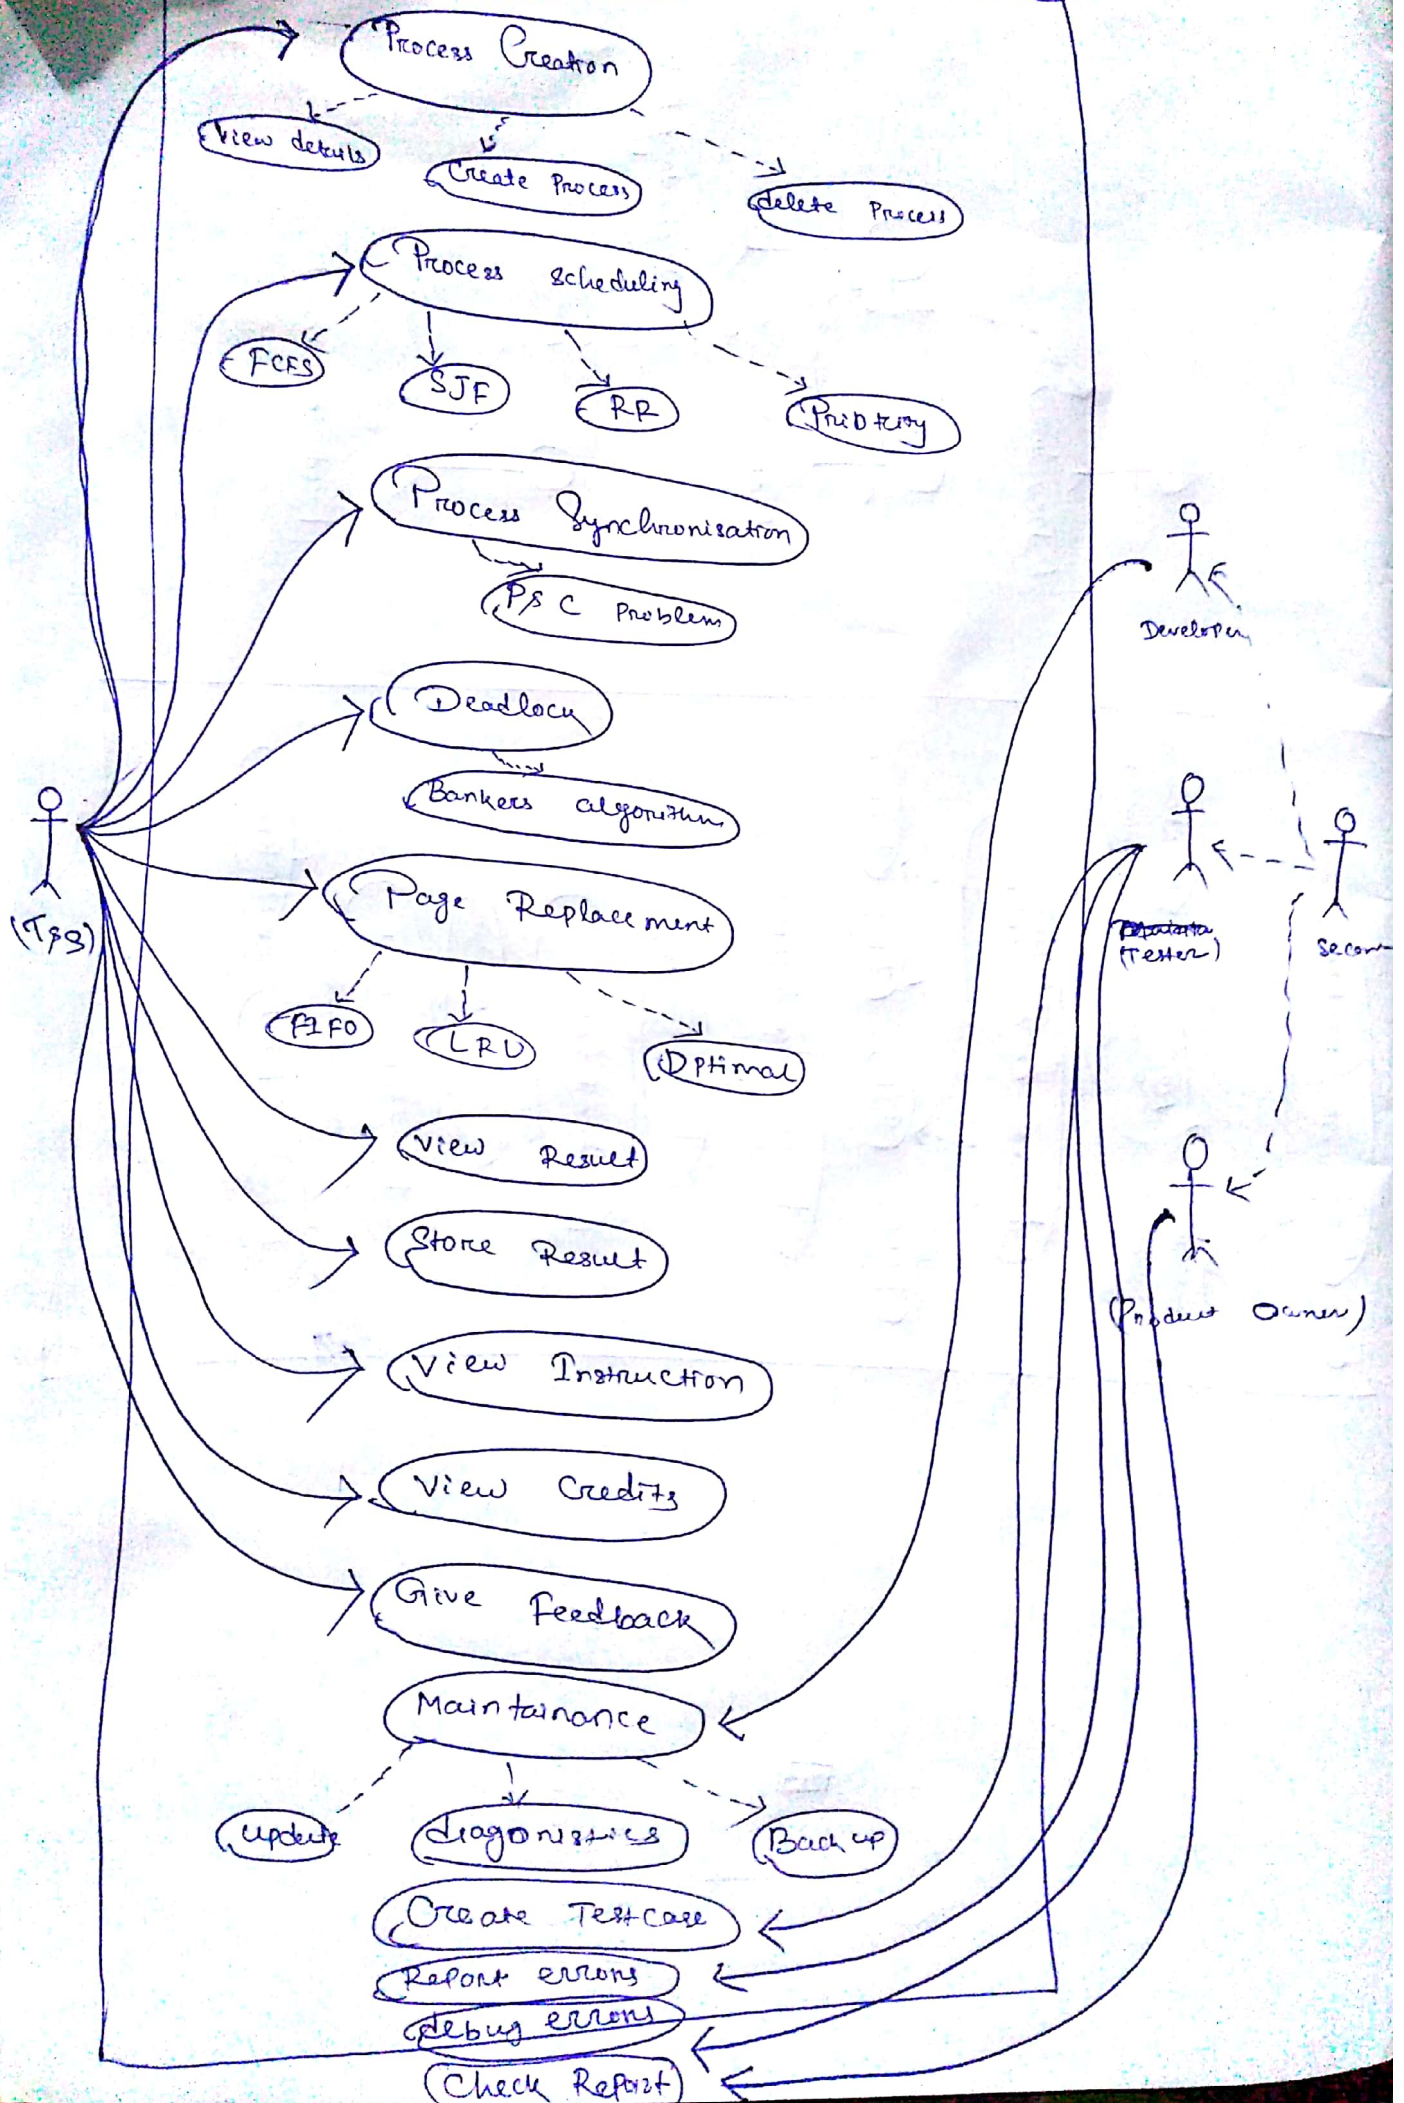 Process Creation
View details
Create Process
delete Process
Process scheduling
FCFS
SJF
RR
Priority
Process Synchronisation
Developer
P&C Problem
Deadlock
Bankers algorithm
Page Replacement
(T&S)
(Tester)
FIFO
LRU
Optimal
View Result
Store Result
(Product Owner)
View Instruction
View Credits
Give Feedback
Maintainance
update
diagonistics
Backup
Create Testcase
Report errors
debug errors
Check Report